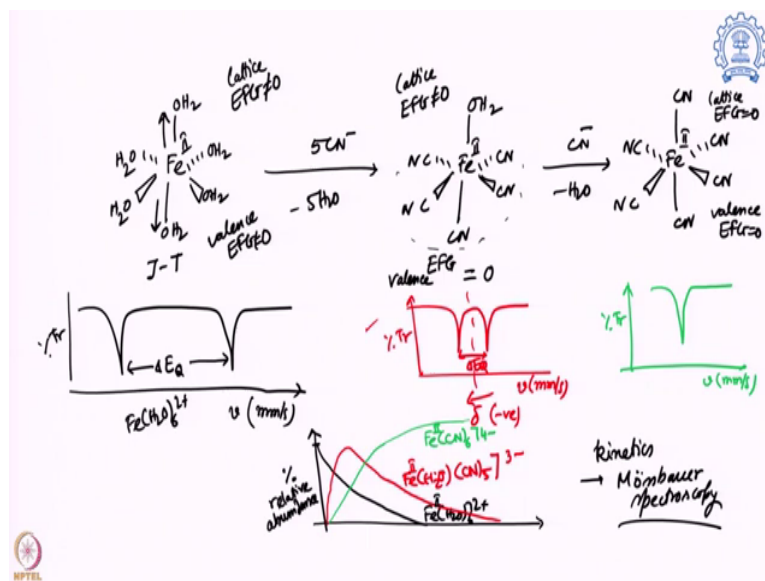 Lattice
EFG≠0
OH2
H2O
Fe II
OH2
H2O
OH2
OH2
J-T
valence
EFG≠0
5CN-
- 5H2O
Lattice
EFG≠0
OH2
NC
Fe II
CN
NC
CN
CN
valence EFG = 0
CN-
-H2O
CN
lattice
EFG=0
NC
Fe II
CN
NC
CN
CN
valence
EFG=0
% Tr
ΔEQ
Fe(H2O)6 2+
υ (mm/s)
% Tr
ΔEQ
υ (mm/s)
δ (-ve)
% Tr
υ (mm/s)
% relative abundance
Fe II (CN)6]4-
Fe II (H2O)(CN)5]3-
Fe II (H2O)6]2+
kinetics
→ Mössbauer
spectroscopy
NPTEL